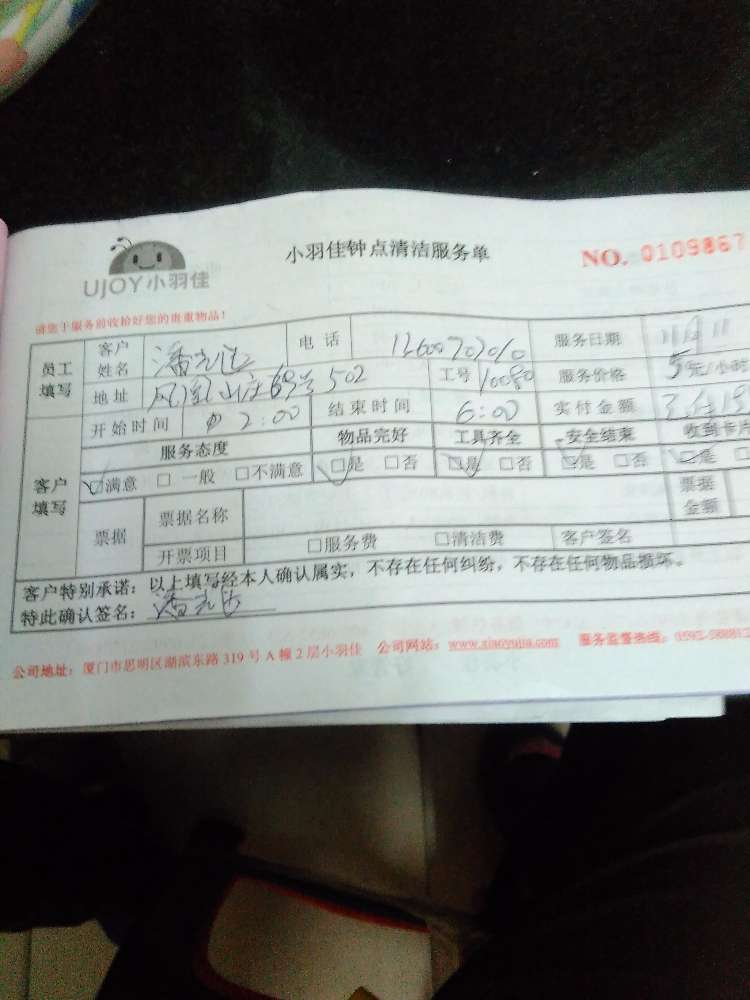 小羽佳钟点清洁服务单
NO. 0109867
UJOY小羽佳
请您于服务前收拾好您的贵重物品!
员工填写 客户姓名 潘 电话 服务日期 11月11
地址 凤凰山庄69号502 工号 10080 服务价格 元/小时
开始时间 2:00 结束时间 6:00 实付金额
客户填写 服务态度 物品完好 工具齐全 安全结束 收到卡片
☑满意 □一般 □不满意 ☑是 □否 ☑是 □否 ☑是 □否 ☑是 □
票据 票据名称 票据金额
开票项目 □服务费 □清洁费 客户签名
客户特别承诺:以上填写经本人确认属实,不存在任何纠纷,不存在任何物品损坏。
特此确认签名: 潘
公司地址:厦门市思明区湖滨东路319号A幢2层小羽佳 公司网站:www.xiaoyujia.com 服务监督热线: